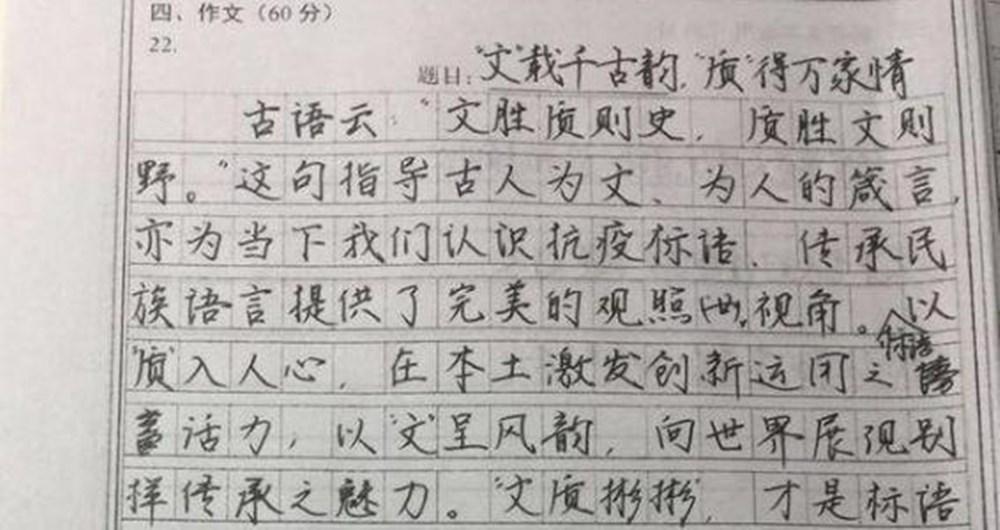 四、作文（60分）
22.
题目：“文”载千古韵，“质”得万家情
古语云：“文胜质则史，质胜文则
野。”这句指导古人为文、为人的箴言，
亦为当下我们认识抗疫标语、传承民
族语言提供了完美的观照视角。标语以
“质”入人心，在本土激发创新运用之
活力，以“文”呈风韵，向世界展现别
样传承之魅力。“文质彬彬”，才是标语